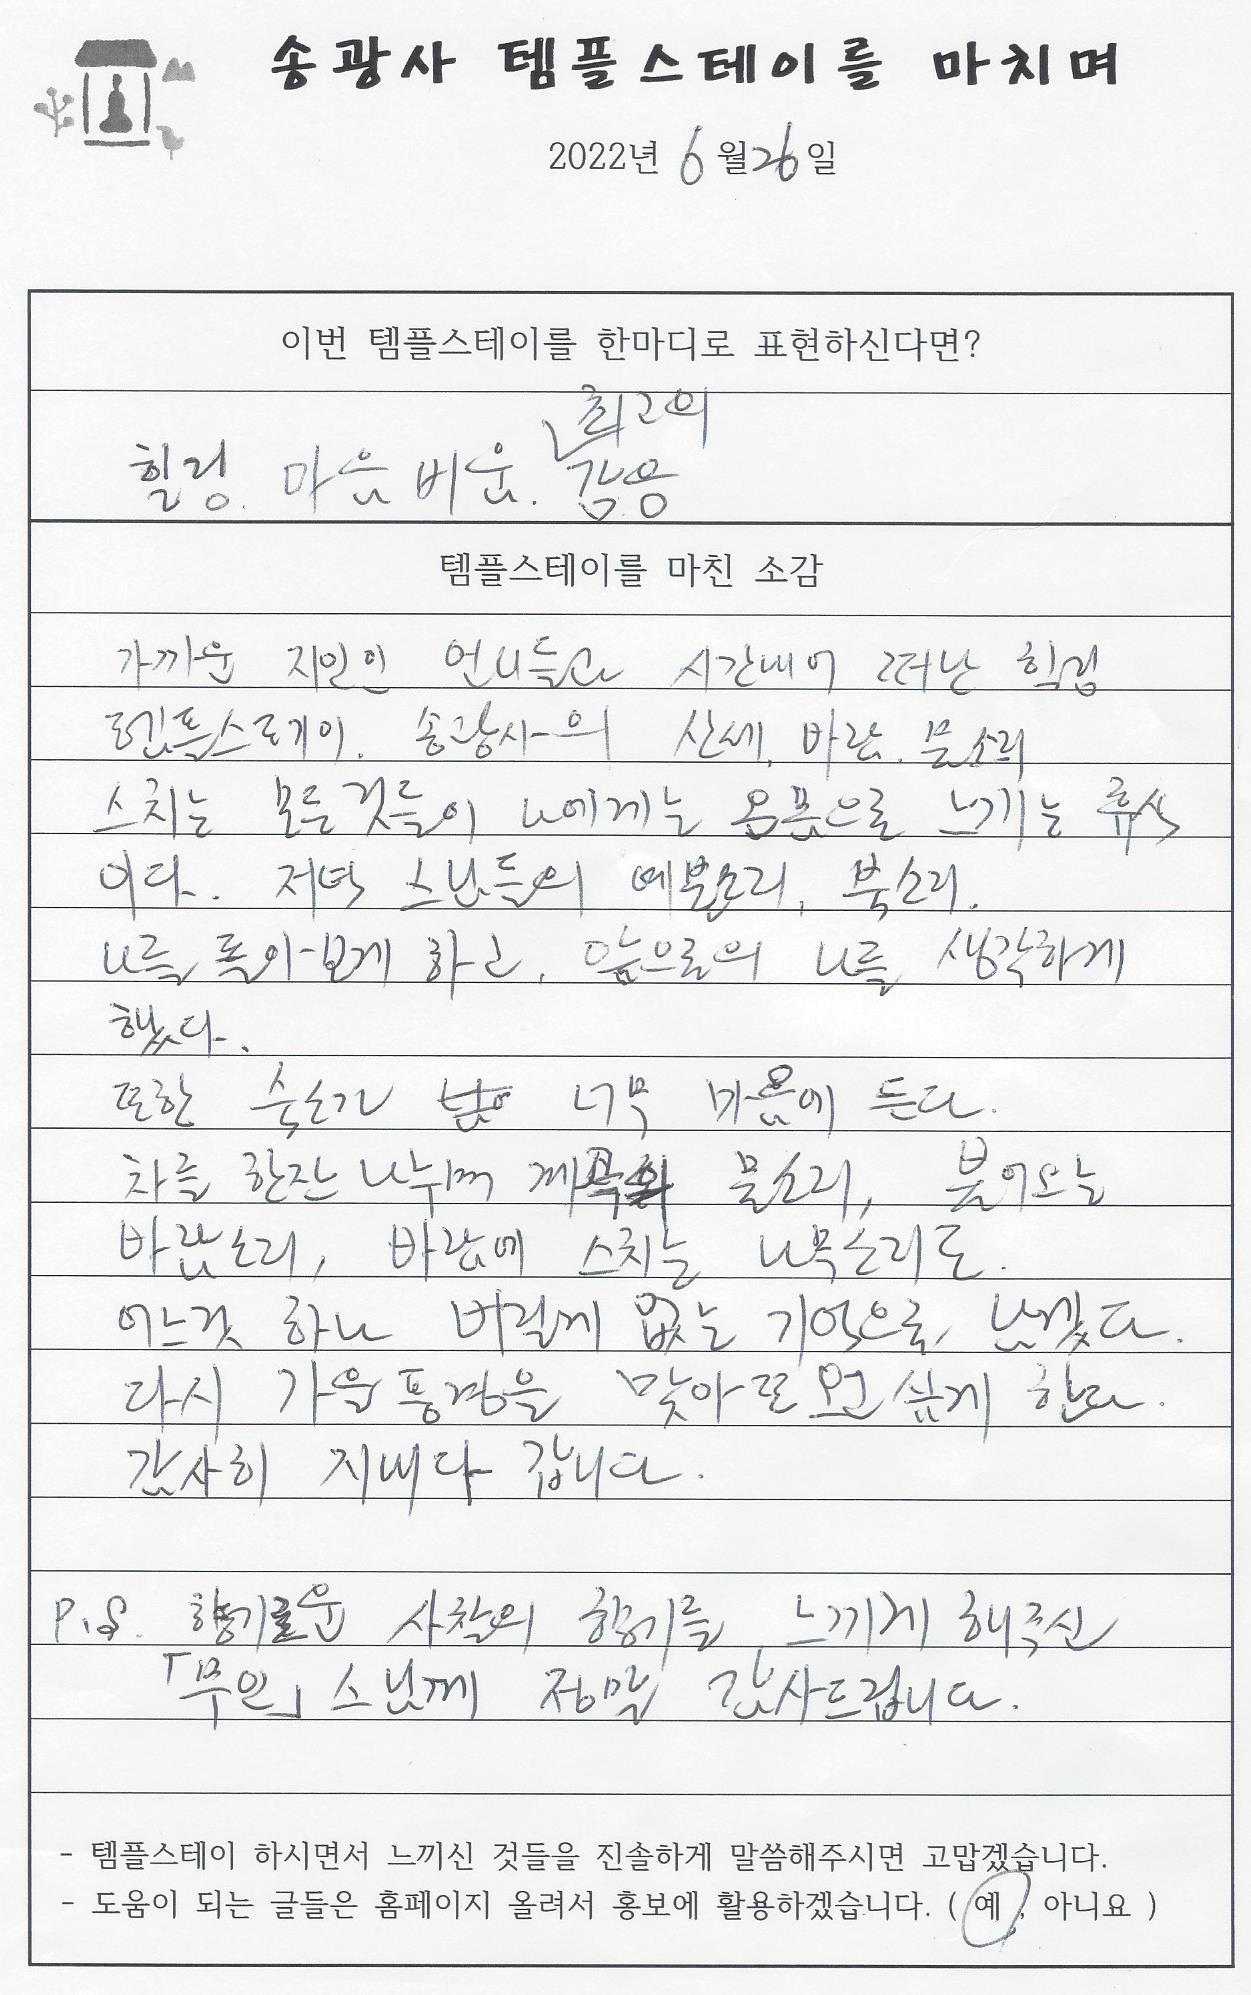 송광사 템플스테이를 마치며
2022년 6월 26일
이번 템플스테이를 한마디로 표현하신다면?
최고의
힐링. 마음비움. 감동
템플스테이를 마친 소감
가까운 지인인 언니들과 시간내어 떠난 힐링
템플스테이. 송광사의 산세, 바람. 물소리
스치는 모든것들이 나에게는 온몸으로 느끼는 휴식
이다. 저녁 스님들의 예불소리, 북소리.
나를 돌아보게 하고, 앞으로의 나를 생각하게
했다.
또한 숙소가 너무 마음에 든다.
차를 한잔 나누며 계곡의 물소리, 불어오는
바람소리, 바람에 스치는 나뭇소리도.
어느것 하나 버릴게 없는 기억으로 남겠다.
다시 가을풍경을 맞아 또 오고 싶게 한다.
감사히 지내다 갑니다.
P.S. 향기로운 사찰의 향기를 느끼게 해주신
「무인」 스님께 정말 감사드립니다.
- 템플스테이 하시면서 느끼신 것들을 진솔하게 말씀해주시면 고맙겠습니다.
- 도움이 되는 글들은 홈페이지 올려서 홍보에 활용하겠습니다. ( 예 , 아니요 )